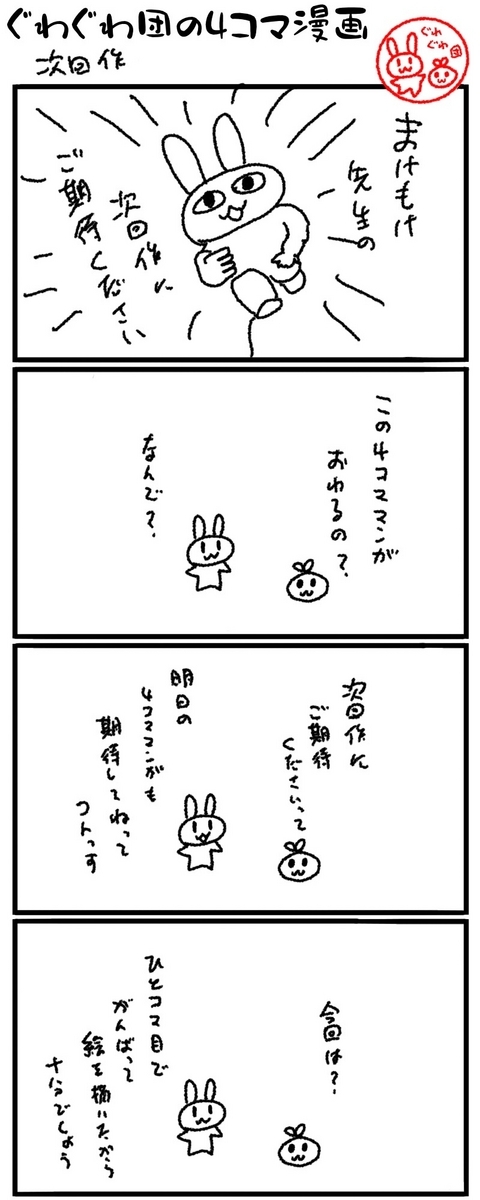 ぐわぐわ団の4コマ漫画
次回作
ぐわ
ぐわ
団
まけもけ
先生の
次回作に
ご期待ください
この4コママンが
おわるの?
なんで?
次回作に
ご期待
くださいって
明日の
4コママンがも
期待してねって
コトっす
今回は?
ひとコマ目で
がんばって
絵を描いたから
十分でしょう